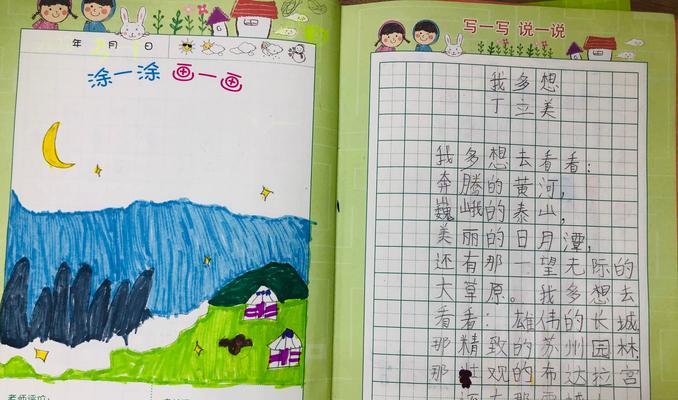 年 月 日
涂一涂 画一画
老师评价:
写一写 说一说
我多想
丁立美
我多想去看看:
奔腾的黄河,
巍峨的泰山,
美丽的日月潭,
还有那一望无际的
大草原。我多想去
看看:雄伟的长城
那精致的苏州园林
那壮观的布达拉宫
还有那